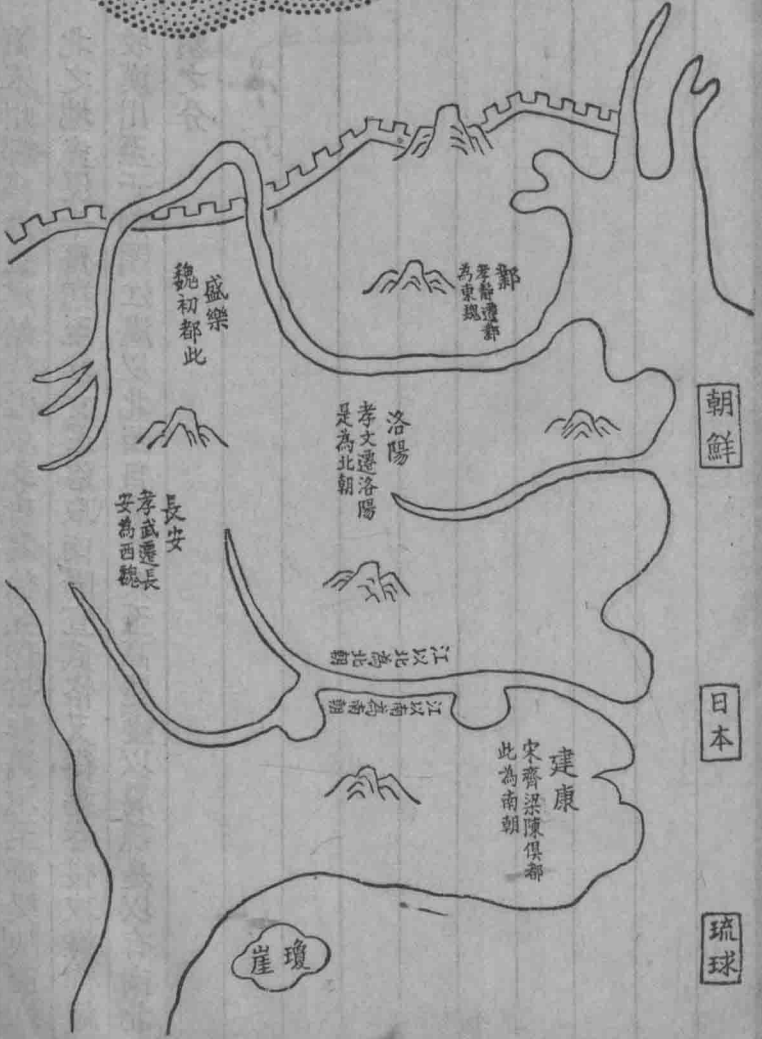 鄴
孝靜遷鄴
為東魏
盛樂
魏初都此
朝鮮
洛陽
孝文遷洛陽
是為北朝
長安
孝武遷長
安為西魏
江以北為北朝
江以南為南朝
日本
建康
宋齊梁陳俱都
此為南朝
琉球
瓊崖